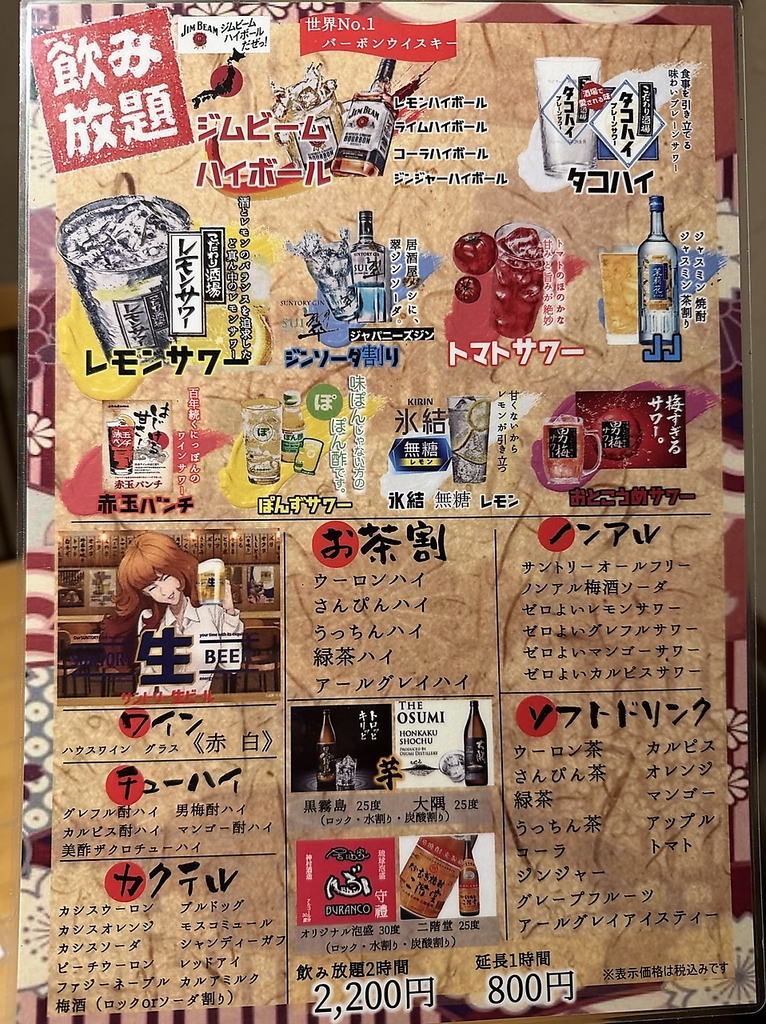 飲み
放題
JIM BEAM
ジムビーム
ハイボール
だぜっ!
世界No.1
バーボンウイスキー
ジムビーム
ハイボール
JIM BEAM
BOURBON
レモンハイボール
ライムハイボール
コーラハイボール
ジンジャーハイボール
こだわり酒場
タコハイ
プレーンサワー
酒場で
愛される味
こだわり酒場
タコハイ
プレーンサワー
食事を引き立てる
味わいプレーンサワー
タコハイ
こだわり酒場
レモンサワー
酒とレモンのバランスを追求した
ど真ん中のレモンサワー
レモンサワー
SUNTORY GIN
SUI
翠
居酒屋メシに、
翠ジンソーダ。
ジャパニーズジン
ジンソーダ割り
トマトのほのかな
甘みと旨みが絶妙
トマトサワー
茉莉花
ジャスミン焼酎
ジャスミン茶割り
JJ
赤玉
パンチ
赤玉パンチ
百年続くにっぽんの
ワインサワー
赤玉パンチ
ぽ
味ぽんじゃない方の
ぽん酢です。
ぽんずサワー
KIRIN
氷結
無糖
レモン
甘くないから
レモンが引き立つ
氷結 無糖 レモン
男梅
男梅
梅すぎる
サワー。
おとこうめサワー
生
BEER
サントリー生ビール
お茶割
ウーロンハイ
さんぴんハイ
うっちんハイ
緑茶ハイ
アールグレイハイ
ノンアル
サントリーオールフリー
ノンアル梅酒ソーダ
ゼロよいレモンサワー
ゼロよいグレフルサワー
ゼロよいマンゴーサワー
ゼロよいカルピスサワー
ワイン
ハウスワイン グラス 《赤 白》
チューハイ
グレフル酎ハイ 男梅酎ハイ
カルピス酎ハイ マンゴー酎ハイ
美酢ザクロチューハイ
カクテル
カシスウーロン ブルドッグ
カシスオレンジ モスコミュール
カシスソーダ シャンディーガフ
ピーチウーロン レッドアイ
ファジーネーブル カルアミルク
梅酒（ロックorソーダ割り）
トロッと
キリッと
THE
OSUMI
HONKAKU
SHOCHU
PRODUCED BY
OSUMI DISTILLERY
芋
黒霧島 25度 大隅 25度
（ロック・水割り・炭酸割り）
神村酒造
BURANCO
琉球泡盛
守禮
二階堂
オリジナル泡盛 30度 二階堂 25度
（ロック・水割り・炭酸割り）
ソフトドリンク
ウーロン茶 カルピス
さんぴん茶 オレンジ
緑茶 マンゴー
うっちん茶 アップル
コーラ トマト
ジンジャー
グレープフルーツ
アールグレイアイスティー
飲み放題2時間
2,200円
延長1時間
800円
※表示価格は税込みです